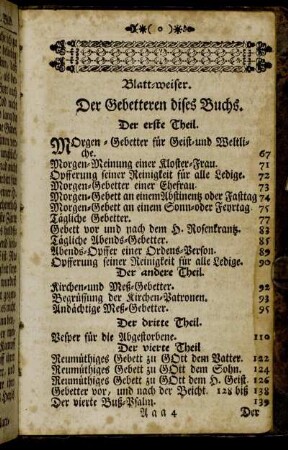 ( o )
Blatt-weiser.
Der Gebetteren dises Buchs.
Der erste Theil.
MOrgen-Gebetter für Geist-und Weltli-
che. 67
Morgen-Meinung einer Kloster-Frau. 71
Opfferung seiner Reinigkeit für alle Ledige. 72
Morgen-Gebetter einer Ehefrau. 73
Morgen-Gebett an einem Abstinentz oder Fasttag 74
Morgen-Gebett an einem Sonn-oder Feyrtag. 75
Tägliche Gebetter. 77
Gebett vor und nach dem H. Rosenkrantz. 83
Tägliche Abends-Gebetter. 85
Abends-Opffer einer Ordens-Person. 89
Opfferung seiner Reinigkeit für alle Ledige. 90
Der andere Theil.
Kirchen-und Meß-Gebetter. 92
Begrüssung der Kirchen-Patronen. 93
Andächtige Meß-Gebetter. 95
Der dritte Theil.
Vesper für die Abgestorbene. 110
Der vierte Theil
Reumüthiges Gebett zu GOtt dem Vatter. 122
Reumüthiges Gebett zu GOtt dem Sohn. 124
Reumüthiges Gebett zu GOtt dem H. Geist. 126
Gebetter vor, und nach der Beicht. 128 biß 138
Der vierte Buß-Psalm. 139
Aaa 4 Der